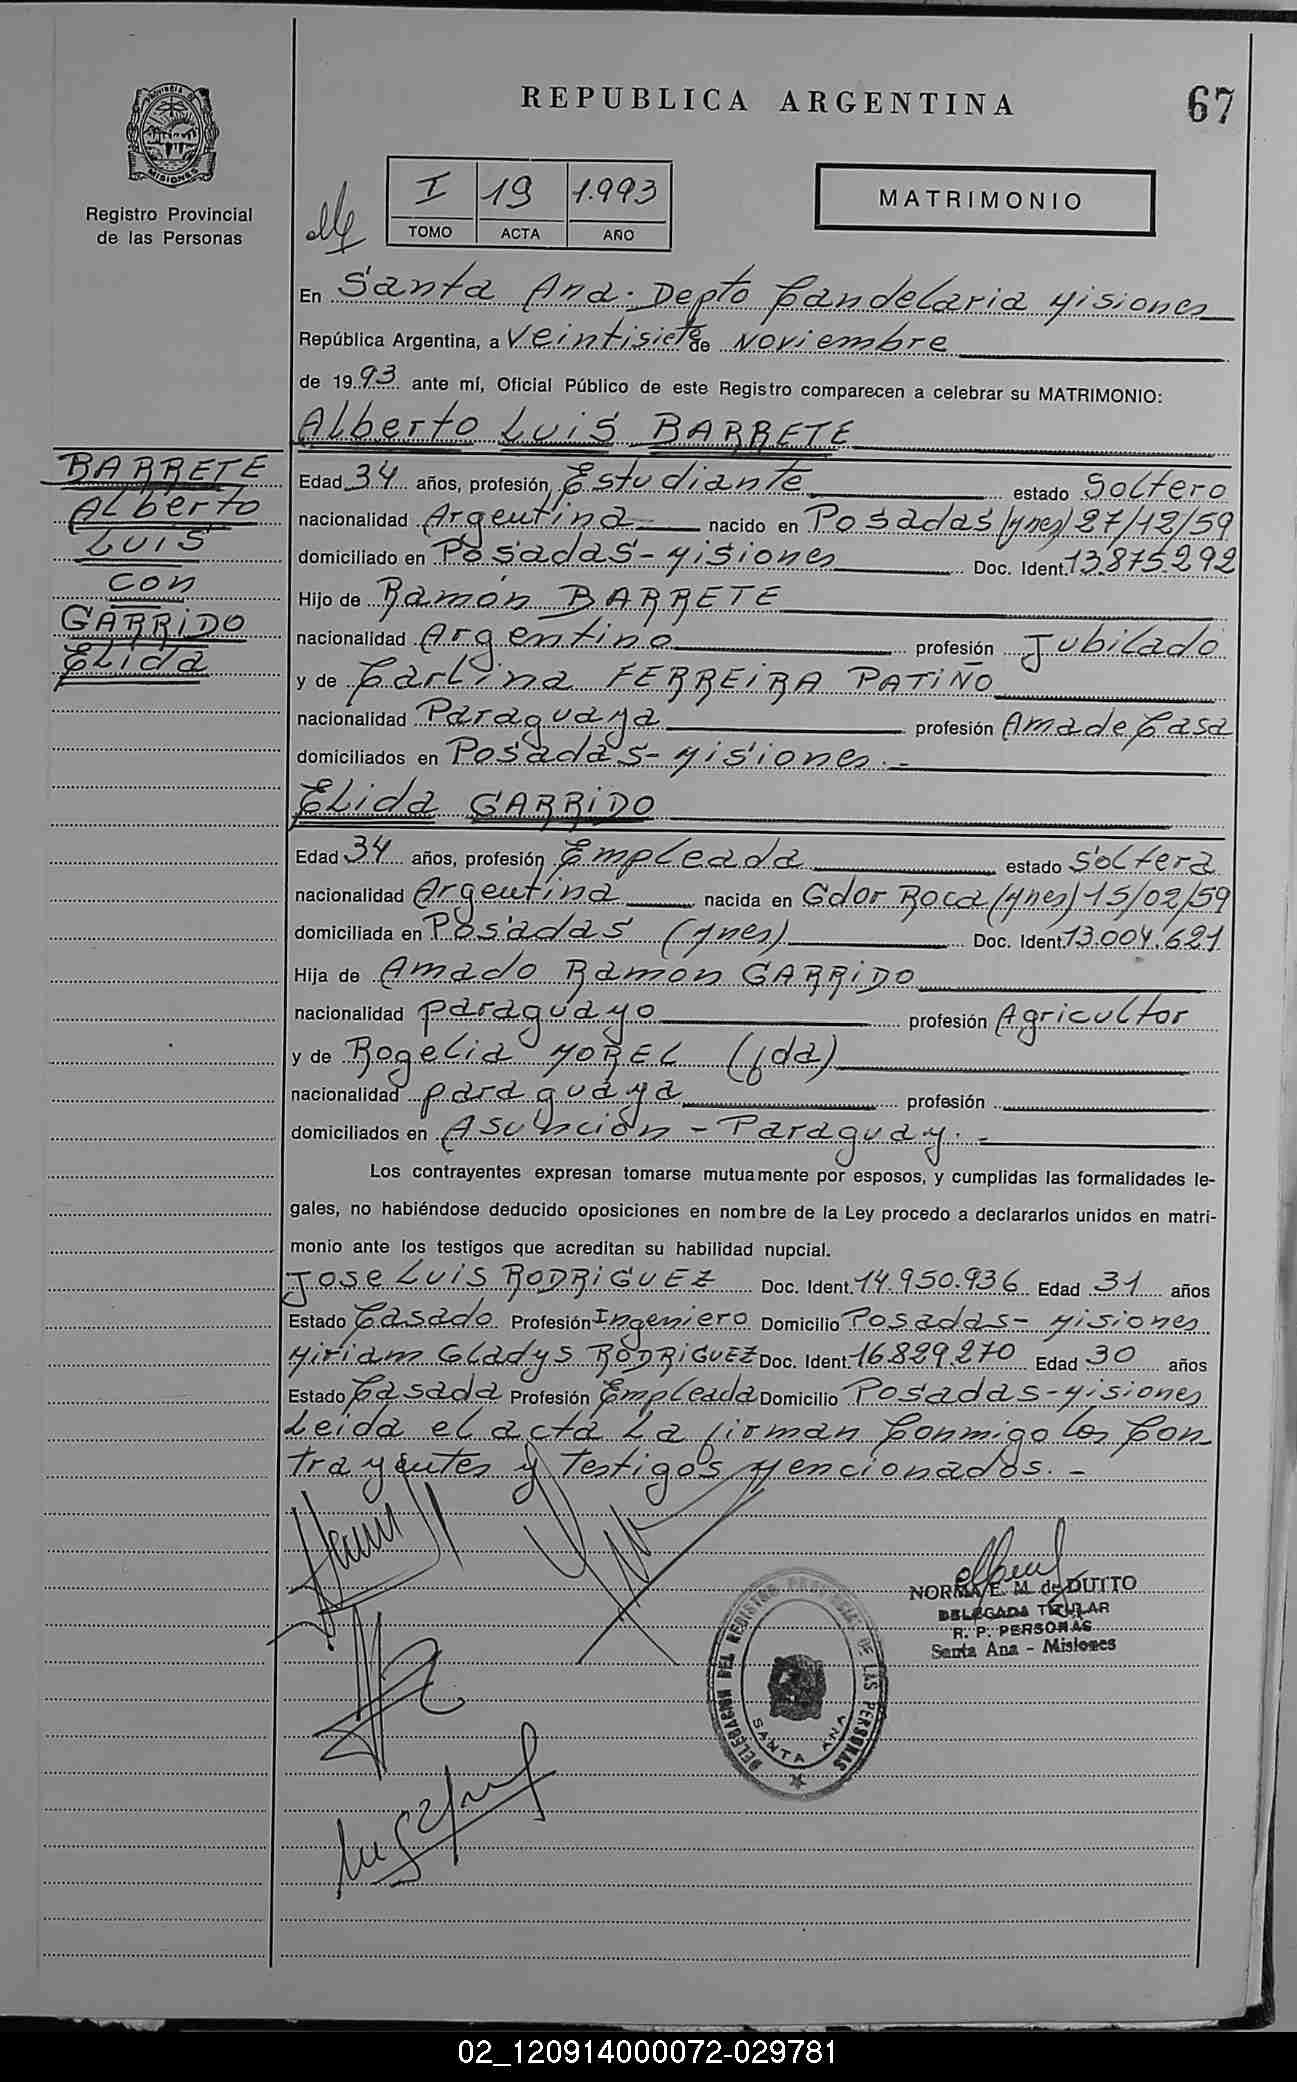 REPUBLICA ARGENTINA
67
PROVINCIA DE
MISIONES
Registro Provincial
de las Personas
I 19 1.993
TOMO ACTA AÑO
MATRIMONIO
En Santa Ana. Depto Candelaria Misiones
República Argentina, a Veintisiete de Noviembre
de 1993 ante mí, Oficial Público de este Registro comparecen a celebrar su MATRIMONIO:
Alberto Luis BARRETE
BARRETE
Alberto
Luis
con
GARRIDO
Elida
Edad 34 años, profesión Estudiante estado Soltero
nacionalidad Argentina nacido en Posadas (Mnes) 27/12/59
domiciliado en Posadas - Misiones Doc. Ident. 13.875.292
Hijo de Ramón BARRETE
nacionalidad Argentino profesión Jubilado
y de Carlina FERREIRA PATIÑO
nacionalidad Paraguaya profesión Ama de Casa
domiciliados en Posadas - Misiones. -
Elida GARRIDO
Edad 34 años, profesión Empleada estado Soltera
nacionalidad Argentina nacida en Gdor Roca (Mnes) 15/02/59
domiciliada en Posadas (Mnes) Doc. Ident. 13.004.621
Hija de Amado Ramon GARRIDO
nacionalidad paraguayo profesión Agricultor
y de Rogelia MOREL (fda)
nacionalidad paraguaya profesión
domiciliados en Asunción - Paraguay. -
Los contrayentes expresan tomarse mutuamente por esposos, y cumplidas las formalidades le-
gales, no habiéndose deducido oposiciones en nombre de la Ley procedo a declararlos unidos en matri-
monio ante los testigos que acreditan su habilidad nupcial.
Jose Luis RODRIGUEZ Doc. Ident. 14.950.936 Edad 31 años
Estado Casado Profesión Ingeniero Domicilio Posadas - Misiones
Miriam Gladys RODRIGUEZ Doc. Ident. 16.829.270 Edad 30 años
Estado Casada Profesión Empleada Domicilio Posadas - Misiones
Leida el acta La firman Conmigo los Con-
trayentes y Testigos Mencionados. -
NORMA E. M. de DUTTO
DELEGADA TITULAR
R. P. PERSONAS
Santa Ana - Misiones
DELEGACION DEL REGISTRO PROVINCIAL DE LAS PERSONAS
SANTA ANA
02_120914000072-029781